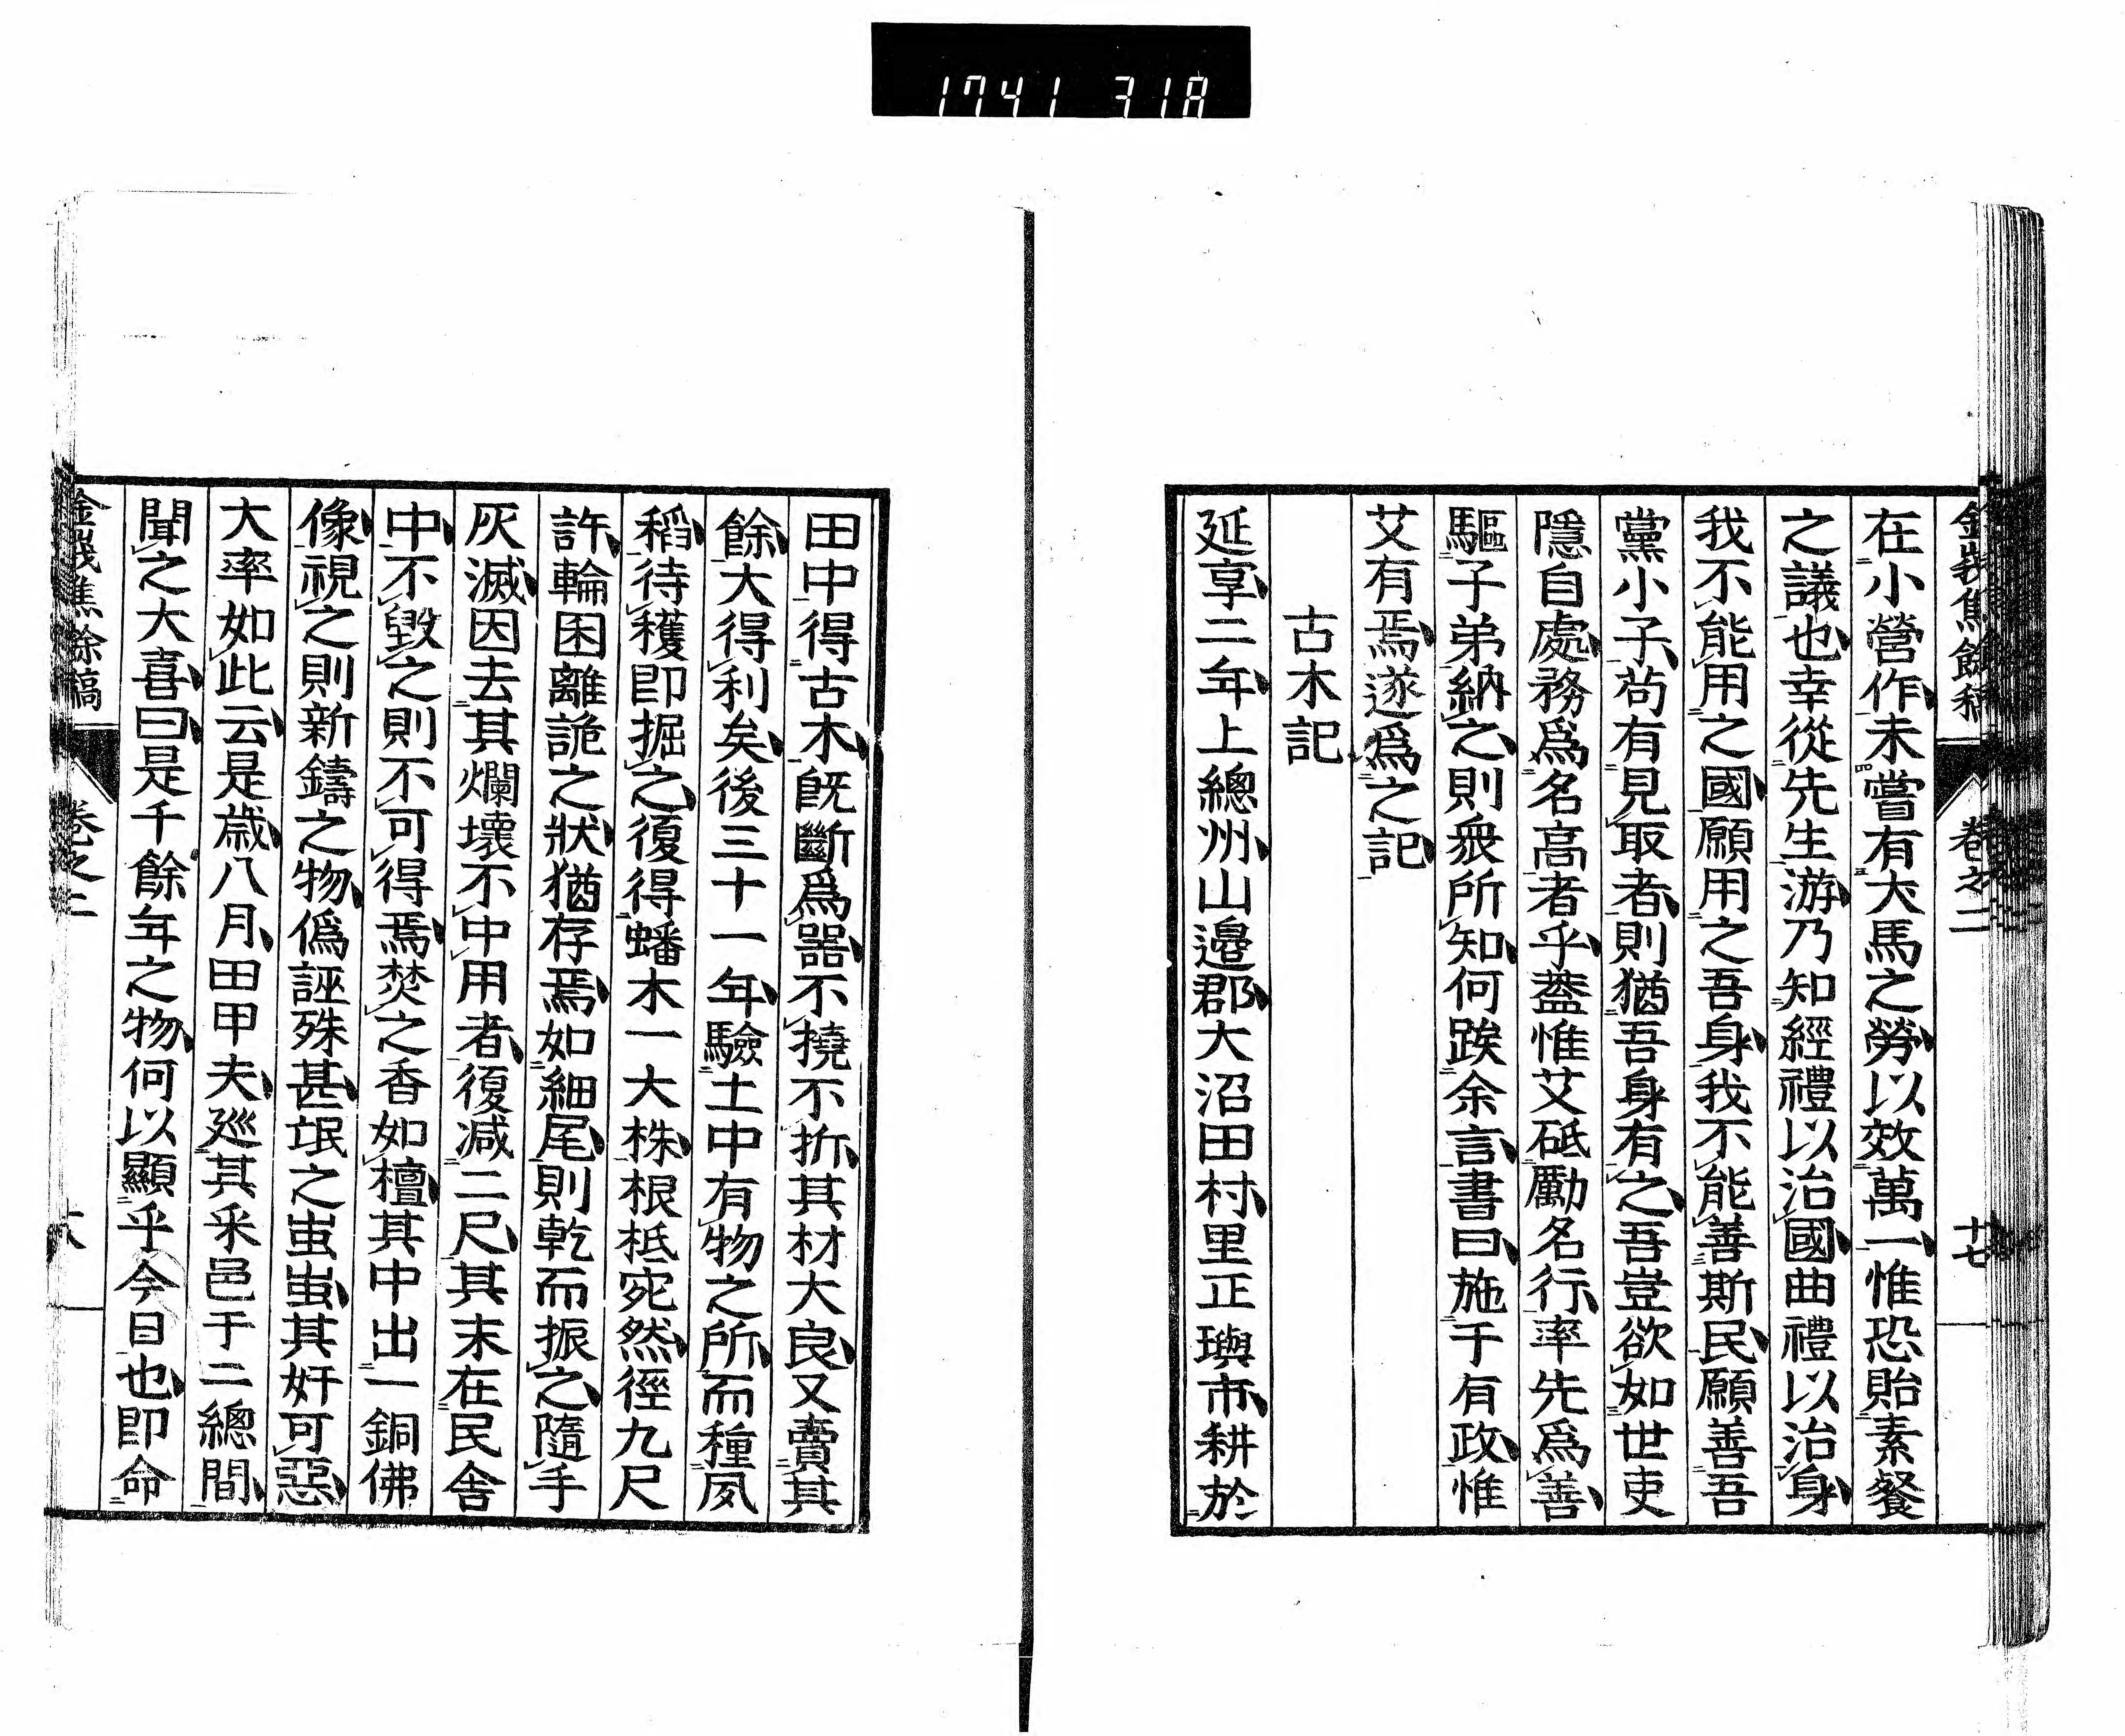 1741 318
金峩焦餘稿 卷之二 十七
在小營作未嘗有犬馬之勞以效萬一惟恐貽素餐
之議也幸從先生游乃知經禮以治國曲禮以治身
我不能用之國願用之吾身我不能善斯民願善吾
黨小子尚有見取者則猶吾身有之吾豈欲如世吏
隱自處務爲名高者乎葢惟艾砥勵名行率先爲善
驅子弟納之則衆所知何跂余言書曰施于有政惟
艾有焉遂爲之記
古木記
延享二年上總州山邊郡大沼田村里正璵市耕於
田中得古木旣斷爲器不撓不折其材大良又賣其
餘大得利矣後三十一年驗土中有物之所而種夙
稻待穫卽掘之復得蟠木一大株根柢宛然徑九尺
許輪囷離詭之狀猶存焉如細尾則乾而振之隨手
灰滅因去其爛壞不中用者復减二尺其末在民舍
中不毀之則不可得焉焚之香如檀其中出一銅佛
像視之則新鑄之物僞誣殊甚氓之蚩蚩其奸可惡
大率如此云是歲八月田甲夫巡其釆邑于二總間
聞之大喜曰是千餘年之物何以顯乎今日也卽命
金峩焦餘稿 卷之二